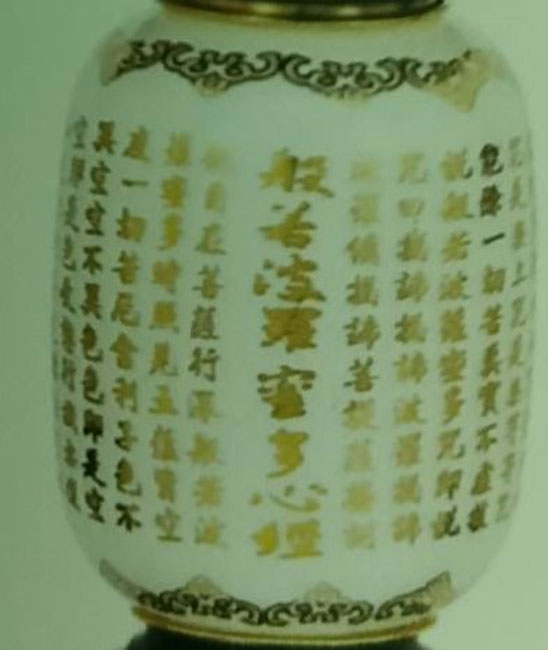 咒是無上咒是無等等咒
能除一切苦真實不虛故
說般若波羅蜜多咒即說
咒曰揭諦揭諦波羅揭諦
羅僧揭諦菩提薩
般若波羅蜜多心經
自在菩薩行深般若波
蜜多時照見五蘊皆空
度一切苦厄舍利子色不
異空空不異色色即是空
空即是色受想行識亦復